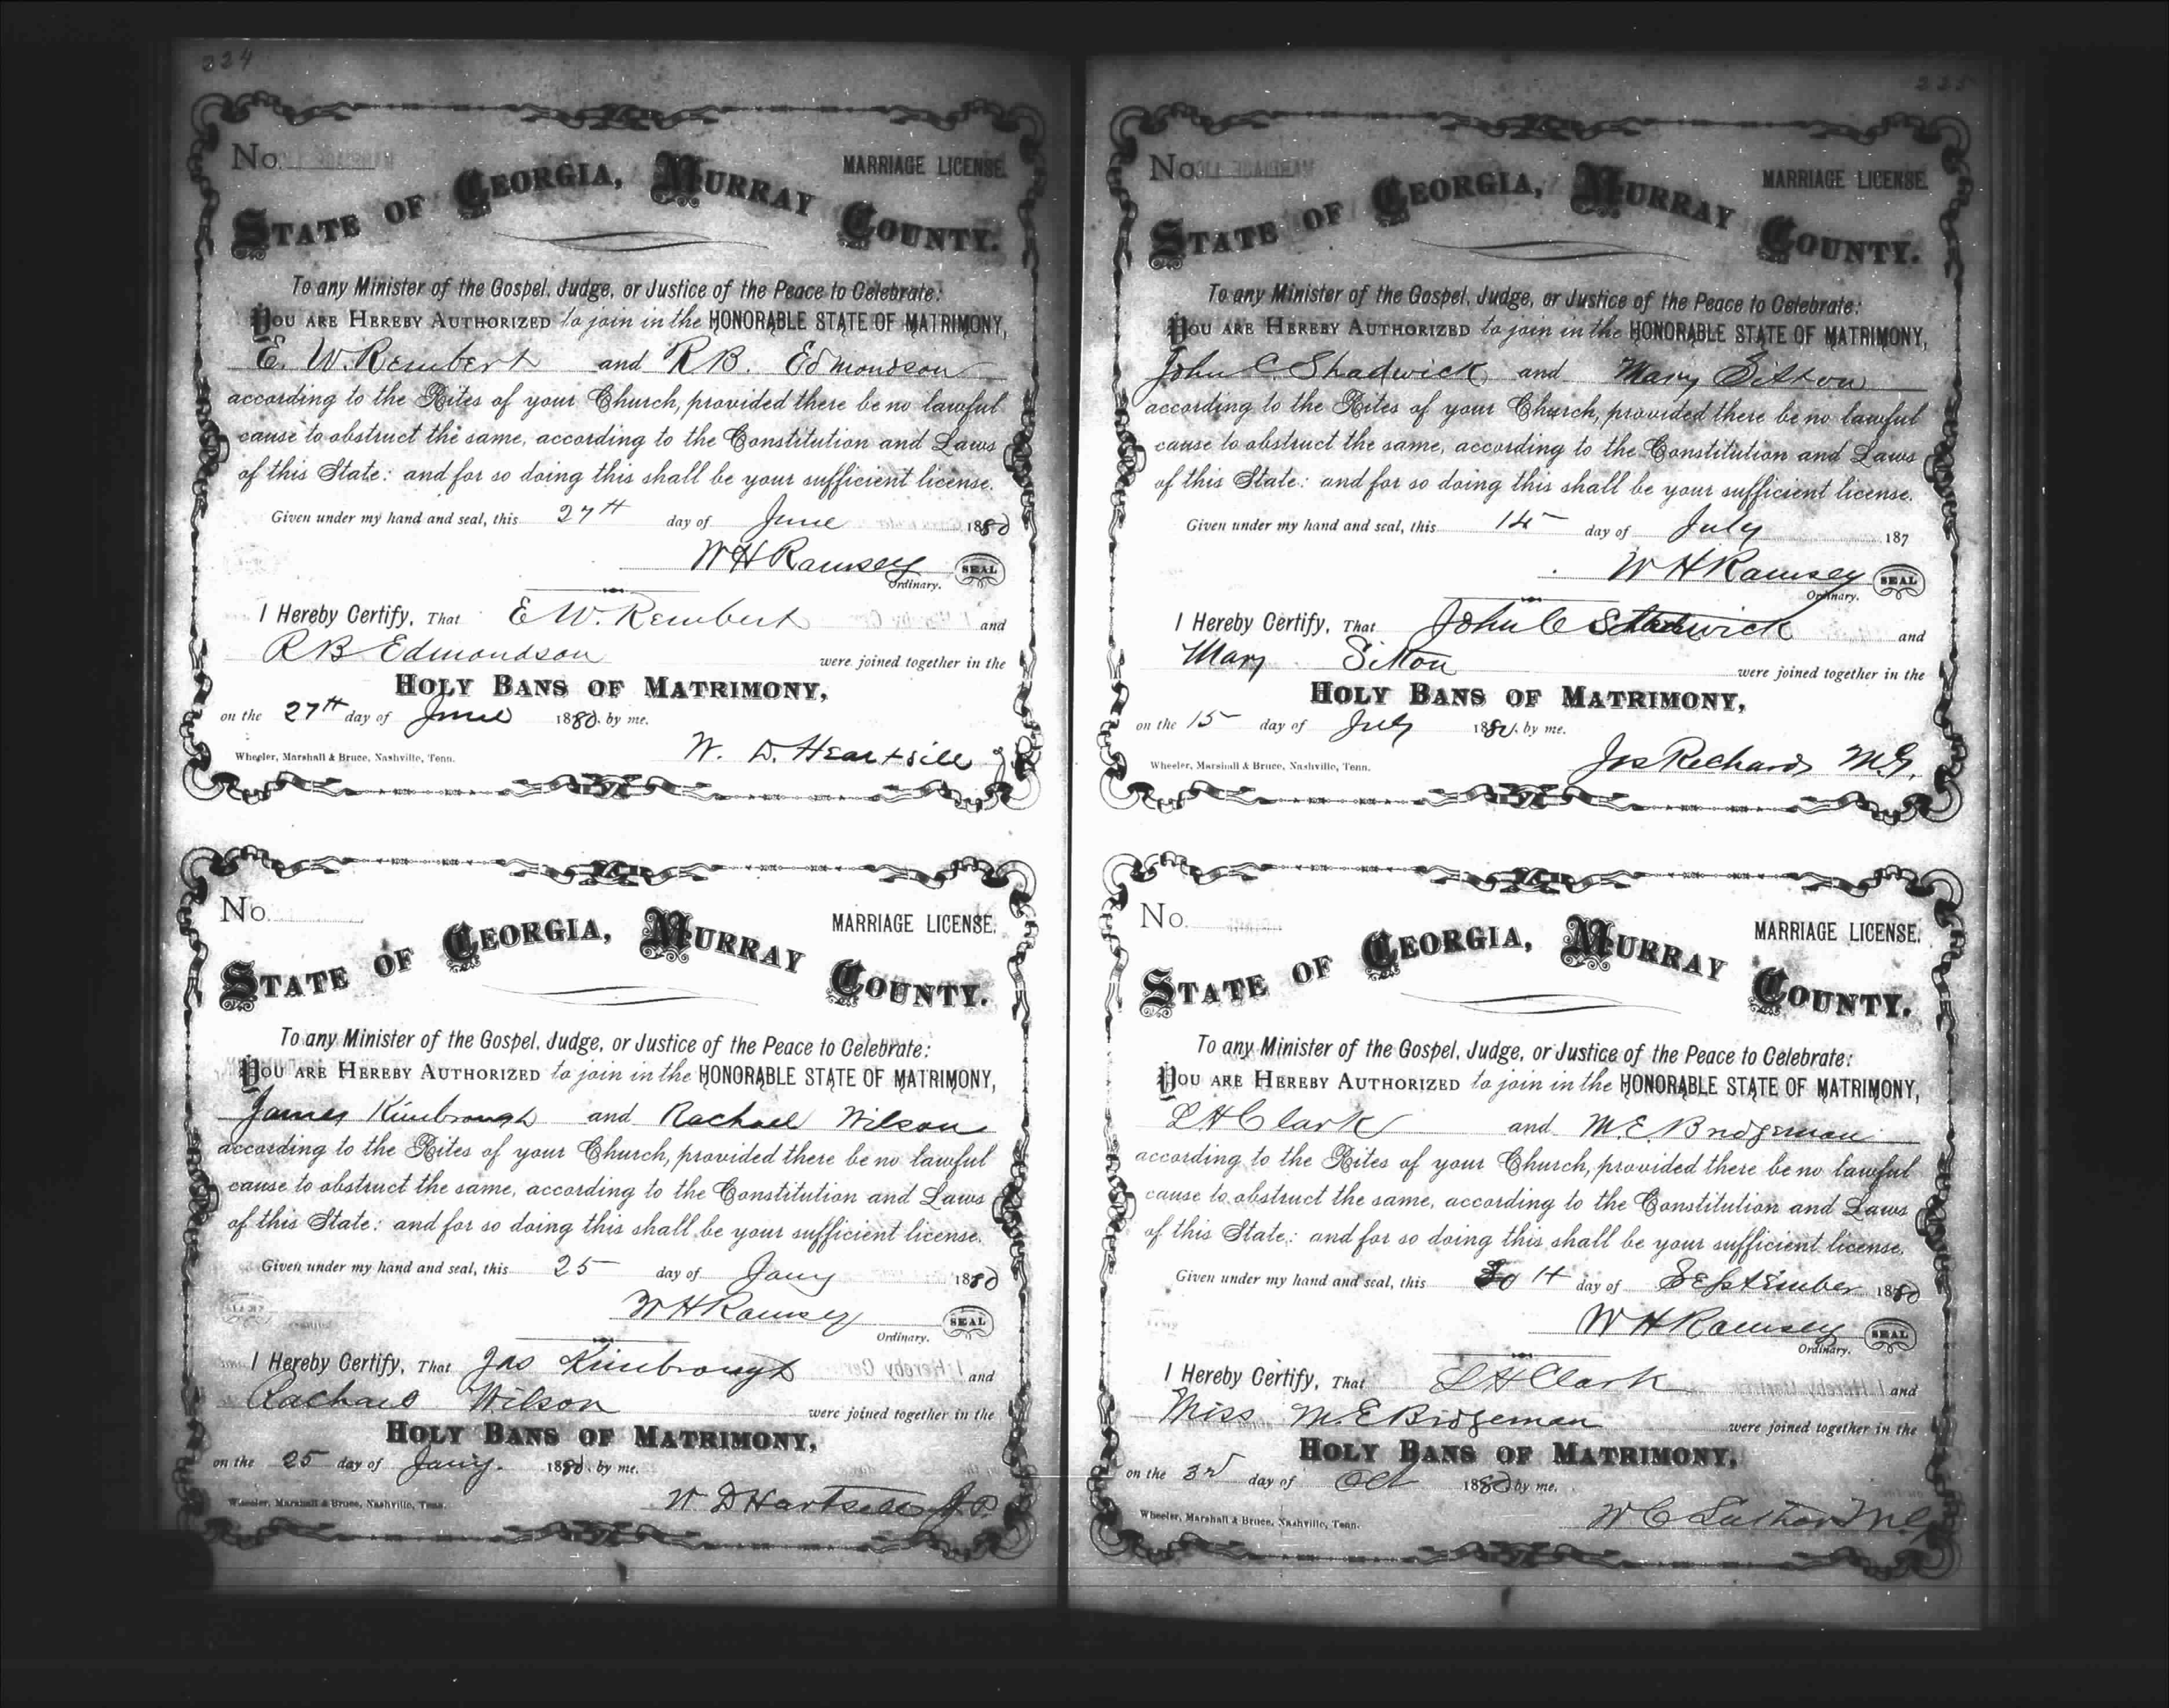 224
No.
MARRIAGE LICENSE.
STATE OF GEORGIA, MURRAY COUNTY.
To any Minister of the Gospel, Judge, or Justice of the Peace to Celebrate:
YOU ARE HEREBY AUTHORIZED to join in the HONORABLE STATE OF MATRIMONY,
E. W. Rembert and R B. Edmondson
according to the Rites of your Church, provided there be no lawful
cause to obstruct the same, according to the Constitution and Laws
of this State: and for so doing this shall be your sufficient license.
Given under my hand and seal, this 27th day of June 1880
W H Ramsey SEAL
Ordinary.
I Hereby Certify, That E W. Rembert and
R B Edmondson were joined together in the
HOLY BANS OF MATRIMONY,
on the 27th day of June 1880. by me.
Wheeler, Marshall & Bruce, Nashville, Tenn. W. D. Heartsill J
No.
MARRIAGE LICENSE.
STATE OF GEORGIA, MURRAY COUNTY.
To any Minister of the Gospel, Judge, or Justice of the Peace to Celebrate:
YOU ARE HEREBY AUTHORIZED to join in the HONORABLE STATE OF MATRIMONY,
James Kimbrough and Rachael Wilson
according to the Rites of your Church, provided there be no lawful
cause to obstruct the same, according to the Constitution and Laws
of this State: and for so doing this shall be your sufficient license.
Given under my hand and seal, this 25 day of Jany 1880
W H Ramsey SEAL
Ordinary.
I Hereby Certify, That Jas Kimbrough and
Rachael Wilson were joined together in the
HOLY BANS OF MATRIMONY,
on the 25 day of Jany. 1880. by me.
Wheeler, Marshall & Bruce, Nashville, Tenn. W D Hartsell J. P.
225
No.
MARRIAGE LICENSE.
STATE OF GEORGIA, MURRAY COUNTY.
To any Minister of the Gospel, Judge, or Justice of the Peace to Celebrate:
YOU ARE HEREBY AUTHORIZED to join in the HONORABLE STATE OF MATRIMONY,
John C. Shadwick and Mary Sitton
according to the Rites of your Church, provided there be no lawful
cause to obstruct the same, according to the Constitution and Laws
of this State: and for so doing this shall be your sufficient license.
Given under my hand and seal, this day of July 187
W H Ramsey SEAL
Ordinary.
I Hereby Certify, That John C Shadwick and
Mary Sitton were joined together in the
HOLY BANS OF MATRIMONY,
on the 15 day of July by me.
Wheeler, Marshall & Bruce, Nashville, Tenn. Jos Richards M.G.
No.
MARRIAGE LICENSE.
STATE OF GEORGIA, MURRAY COUNTY.
To any Minister of the Gospel, Judge, or Justice of the Peace to Celebrate:
YOU ARE HEREBY AUTHORIZED to join in the HONORABLE STATE OF MATRIMONY,
L H Clark and M. E. Bridgeman
according to the Rites of your Church, provided there be no lawful
cause to obstruct the same, according to the Constitution and Laws
of this State: and for so doing this shall be your sufficient license.
Given under my hand and seal, this 30th day of September 1880
W H Ramsey SEAL
Ordinary.
I Hereby Certify, That L H Clark and
Miss M. E Bridgeman were joined together in the
HOLY BANS OF MATRIMONY,
on the 3rd day of Oct 1880 by me.
Wheeler, Marshall & Bruce, Nashville, Tenn. W C Luther M.G.